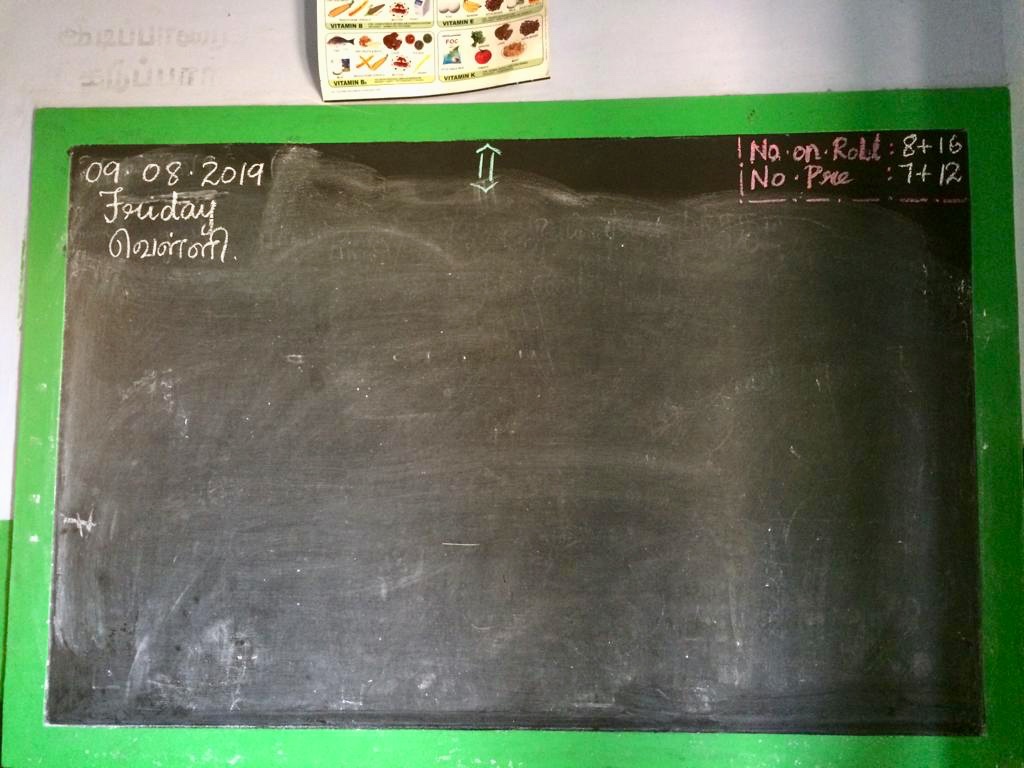 VITAMIN B
VITAMIN E
VITAMIN B₆
VITAMIN K
09.08.2019
Friday
வெள்ளி.
No.on.Roll : 8+16
No.Pre : 7+12